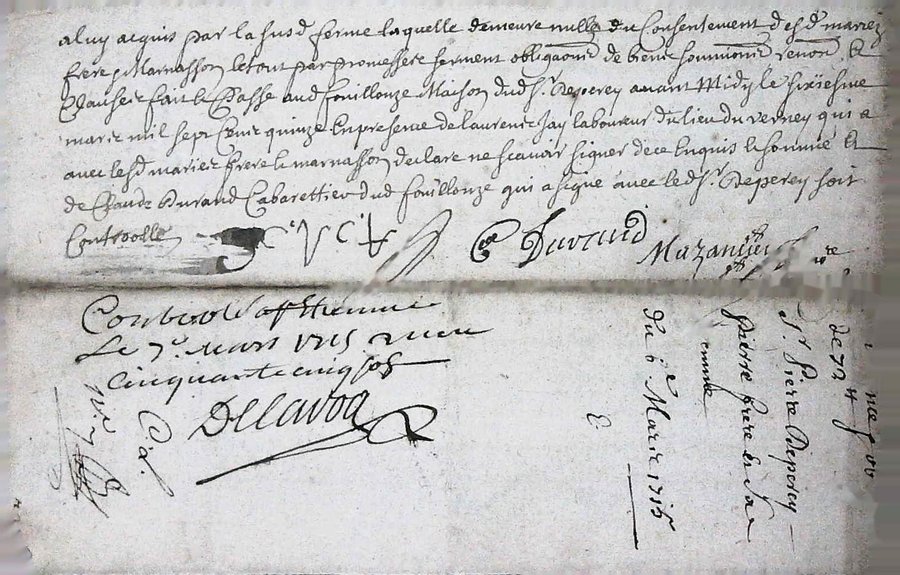 a luy acquis par la susd ferme laquelle demeure nulle du Consentement desd mariez
frere, Marnasson, le tout par promesse serment obligaons de biens soumissions renon et
Clauses fait & Passe aud fouillouze Maison dud Sr. Deperey avant Midy le sixiesme
mars mil sept Cens quinze En presence de laurens Jay laboureur du lieu du verney qui a
avec lesd mariez frere & marnasson declare ne scavoir signer de ce Enquis & somme Et
de Claude Durand Cabarettier dud fouillouze qui a signe avec led Sr. Deperey soit
Controolle
C Durand
Mazanieu
Controlé a St Etienne
Le 7e. Mars 1715 Receu
Cinquante cinq sols
Delavoa
du 6e Mars 1715
Pierre frere &
Sr Pierre Deperey
de 72 tt